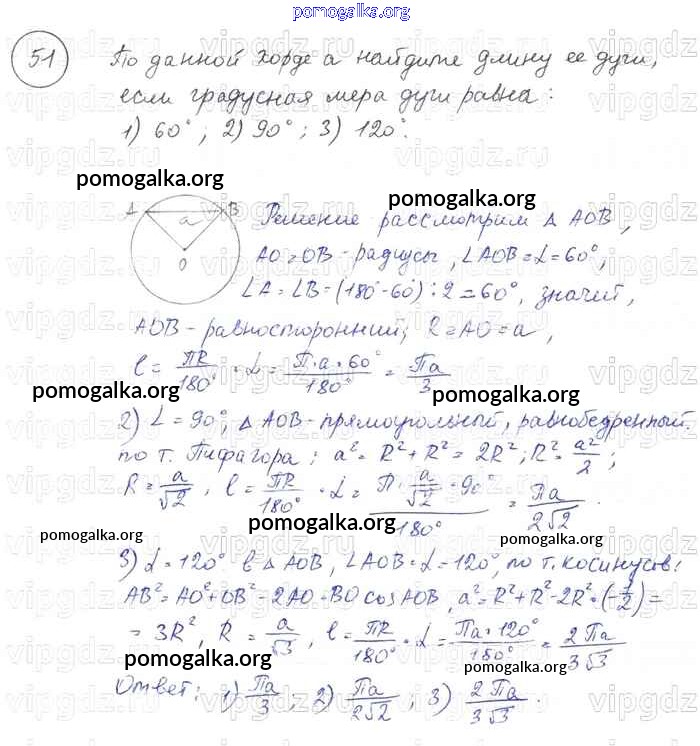 pomogalka.org
51
По данной хорде a найдите длину ее дуги,
если градусная мера дуги равна:
1) 60°; 2) 90°; 3) 120°.
pomogalka.org
pomogalka.org
A B a O
Решение рассмотрим Δ AOB,
AO=OB-радиусы, ∠AOB=∠=60°,
∠A=∠B=(180°-60):2=60°, значит,
AOB-равносторонний; R=AO=a,
l = ПR/180° · ∠ = П·a·60°/180° = Пa/3
pomogalka.org
pomogalka.org
2) ∠=90°; Δ AOB-прямоугольный, равнобедренный.
по т. Пифагора; a²=R²+R²=2R²; R²=a²/2;
R=a/√2, l=ПR/180°·∠= П·a/√2·90°/180° = Пa/2√2.
pomogalka.org
pomogalka.org
3) ∠=120° в Δ AOB, ∠AOB=∠=120°, по т. косинусов:
AB²=AO²+OB²-2AO·BO cos AOB, a²=R²+R²-2R²·(-1/2)=
=3R², R=a/√3, l=ПR/180°·∠=Пa·120°/180°=2Пa/3√3
pomogalka.org
pomogalka.org
Ответ: 1) Пa/3; 2) Пa/2√2; 3) 2Пa/3√3.
vipgdz.ru